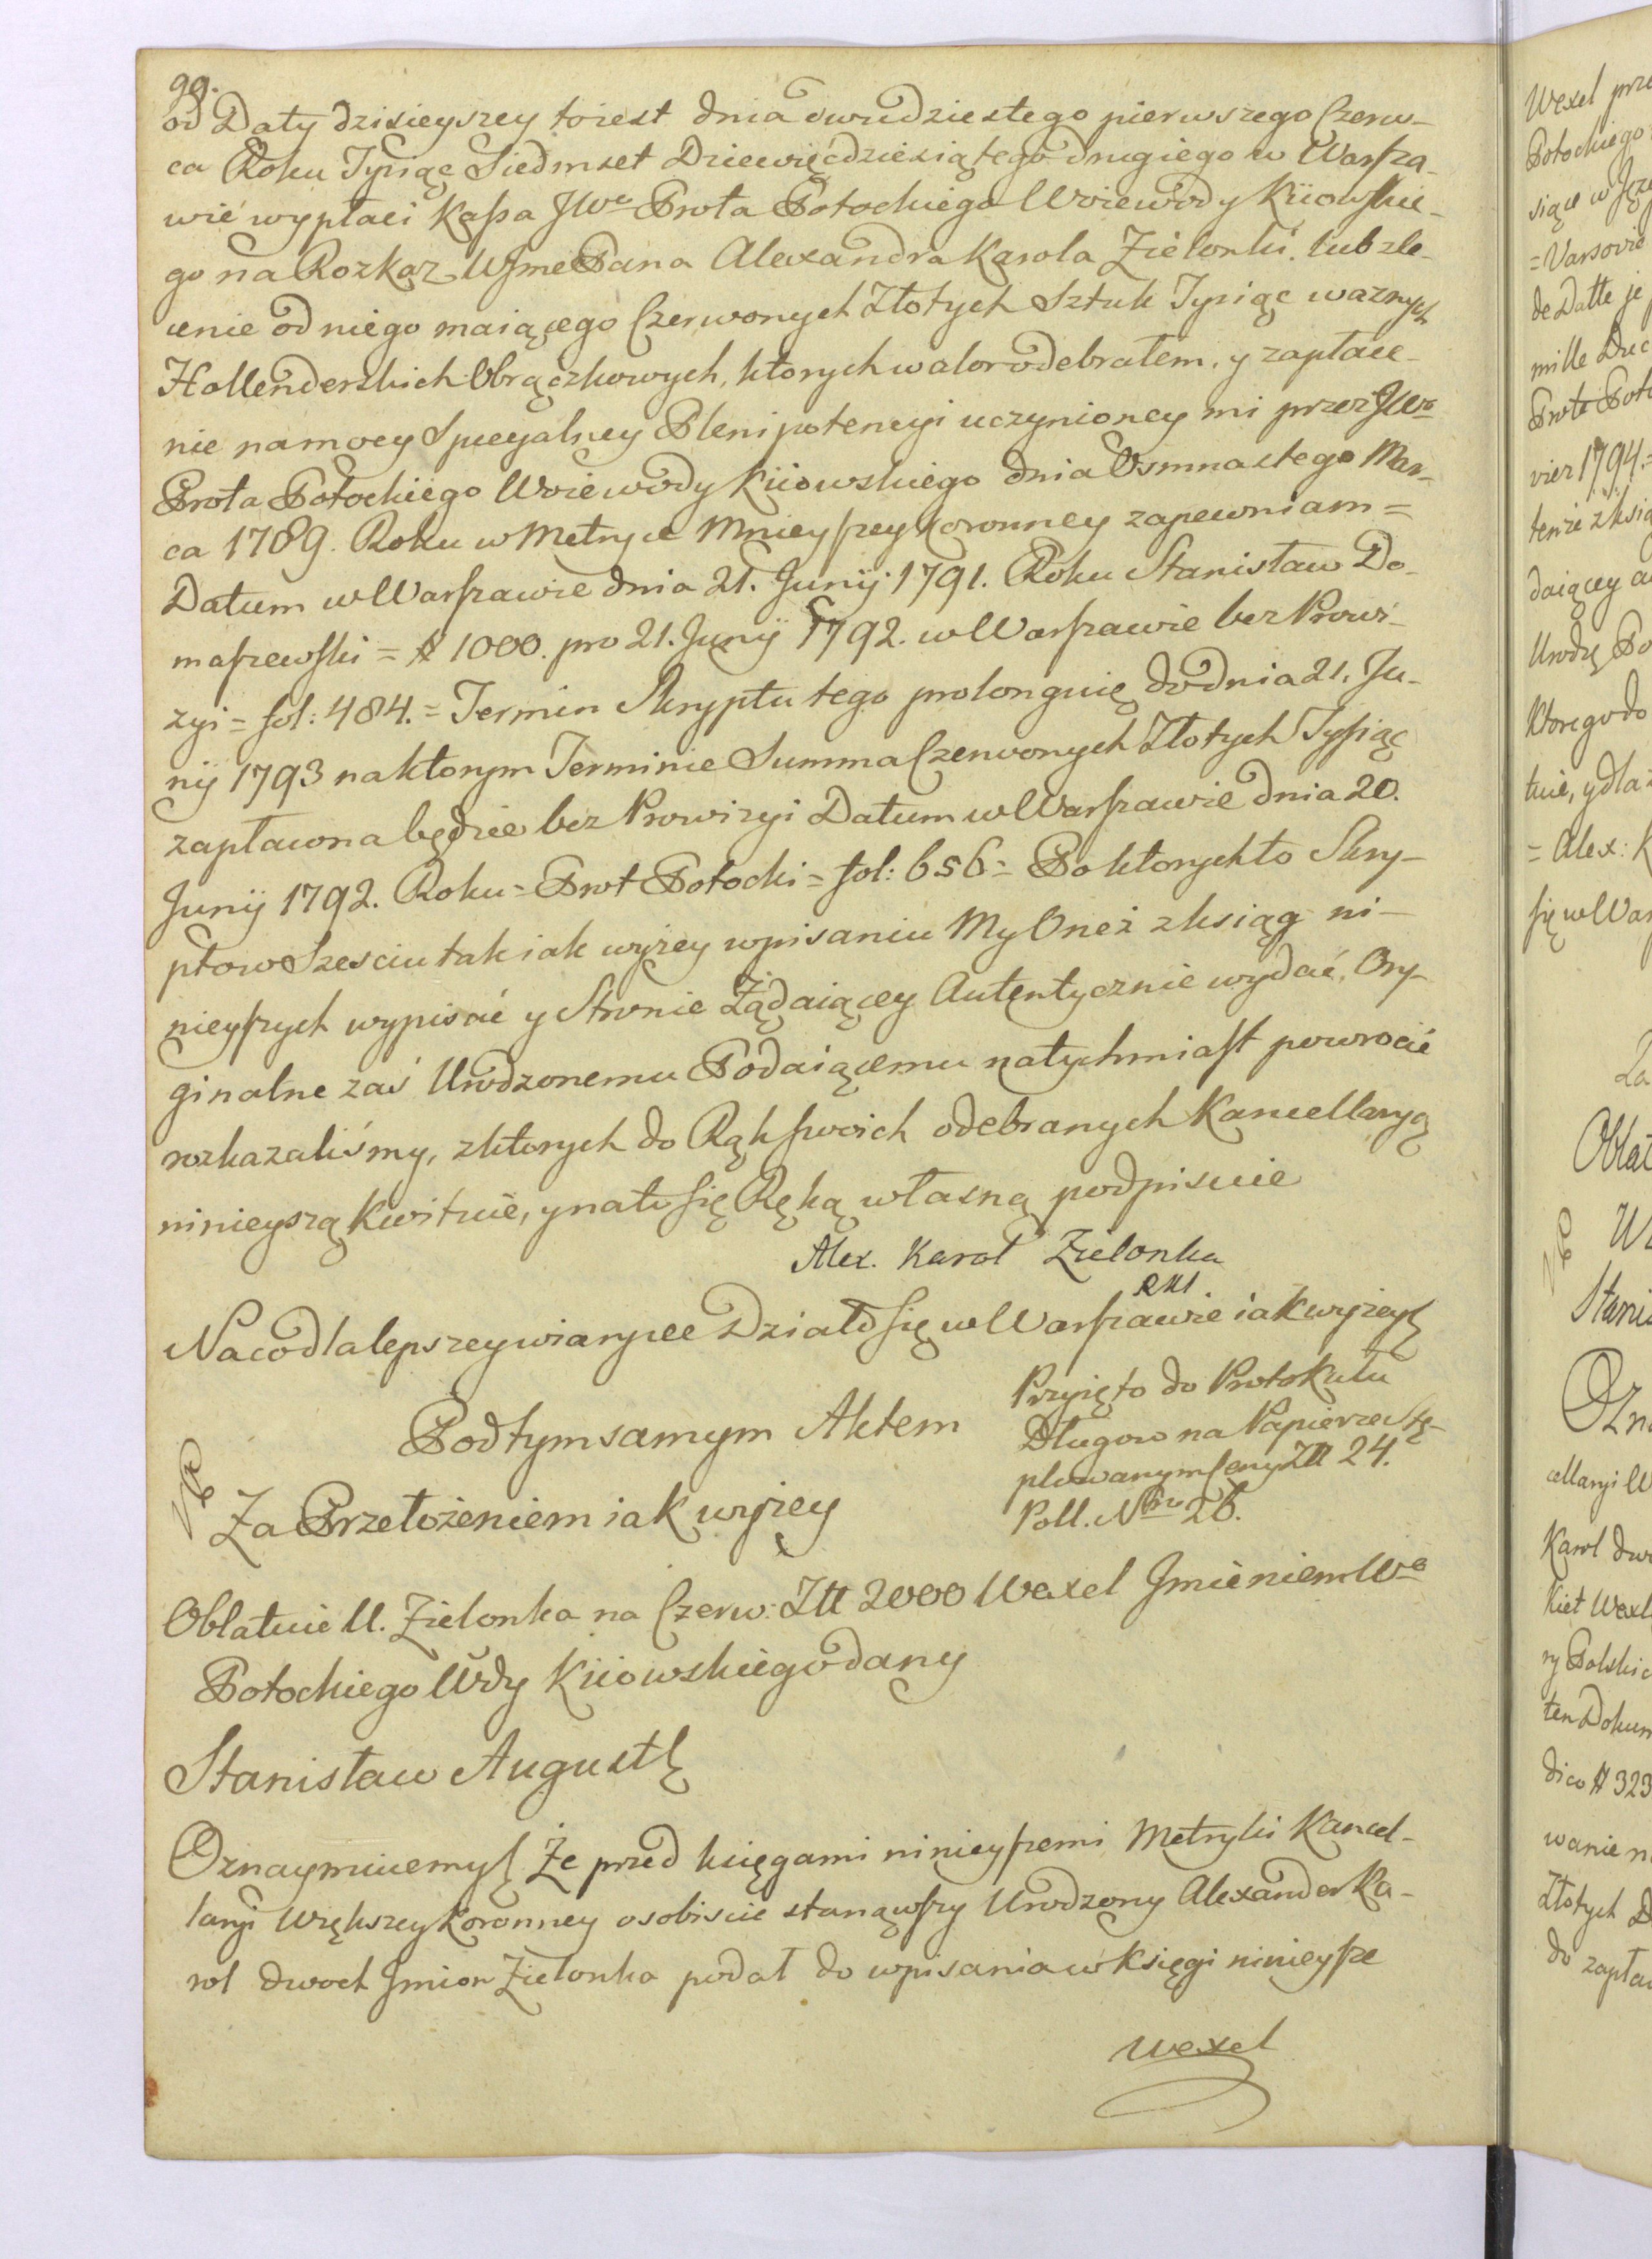 99.
od Daty dzisieyszey to iest dnia dwudziestego pierwszego Czerw-
ca Roku Tysiąc Siedmset Dziewięcdziesiątego drugiego w Warsza-
wie wypłaci Kassa JWo Prota Potockiego Woiewody Kiiowskie-
go na Rozkaz WJme Pana Alexandra Karola Zielonki. lub zle-
cenie od niego maiącego Czerwonych Złotych Sztuk Tysiąc waznych
Hollenderskich Obrączkowych, ktorych walor odebrałem, y zapłace-
nie na mocy Specyalney Plenipotencyi uczynioney mi przez JWo
Prota Potockiego Woiewody Kiiowskiego dnia Osmnastego Mar-
ca 1789. Roku w Metryce Mnieyszey Koronney zapewniam =
Datum w Warszawie dnia 21. Junij 1791. Roku Stanisław Do-
maszewski = # 1000. pro 21. Junij 1792. w Warszawie bez Prowi-
zyi = fol: 484. = Termin Skryptu tego prolonguię do dnia 21. Ju-
nij 1793 na ktorym Terminie Summa Czerwonych Złotych Tysiąc
zapłacona będzie bez Prowizyi Datum w Warszawie dnia 20.
Junij 1792. Roku = Prot Potocki = fol: 656 = Po ktorych to Skry-
ptow Szesciu tak iak wyżey wpisaniu My Oneż z ksiąg ni-
nieyszych wypisać y Stronie Żądaiącey Autentycznie wydać, Ory-
ginalne zaś Urodzonemu Podaiącemu natychmiast powrocić
rozkazaliśmy, z ktorych do Rąk swoich odebranych Kancellaryą
ninieyszą kwituie, y na to się Ręką własną podpisuie
Alex. Karol Zielonka
Na co dla lepszey wiary etc Działo się w Warszawie iak wyżey
Przyięto do Protokułu
Długow na Papierze Stę-
plowanym Ceny Złł 24.
Poll. Nro 26.
Pod tym samym Aktem
Za Przełożeniem iak wyżey
Oblatuie U. Zielonka na Czerw: Złł 2000 Wexel Jmieniem Wo
Potockiego Wdy Kiiowskiego dany
Stanisław August
Oznaymuiemy Że przed księgami ninieyszemi Metryki Kancel-
laryi Większey Koronney osobiscie stanąwszy Urodzony Alexander Ka-
rol dwoch Jmion Zielonka podał do wpisania w księgi ninieysze
Wexel